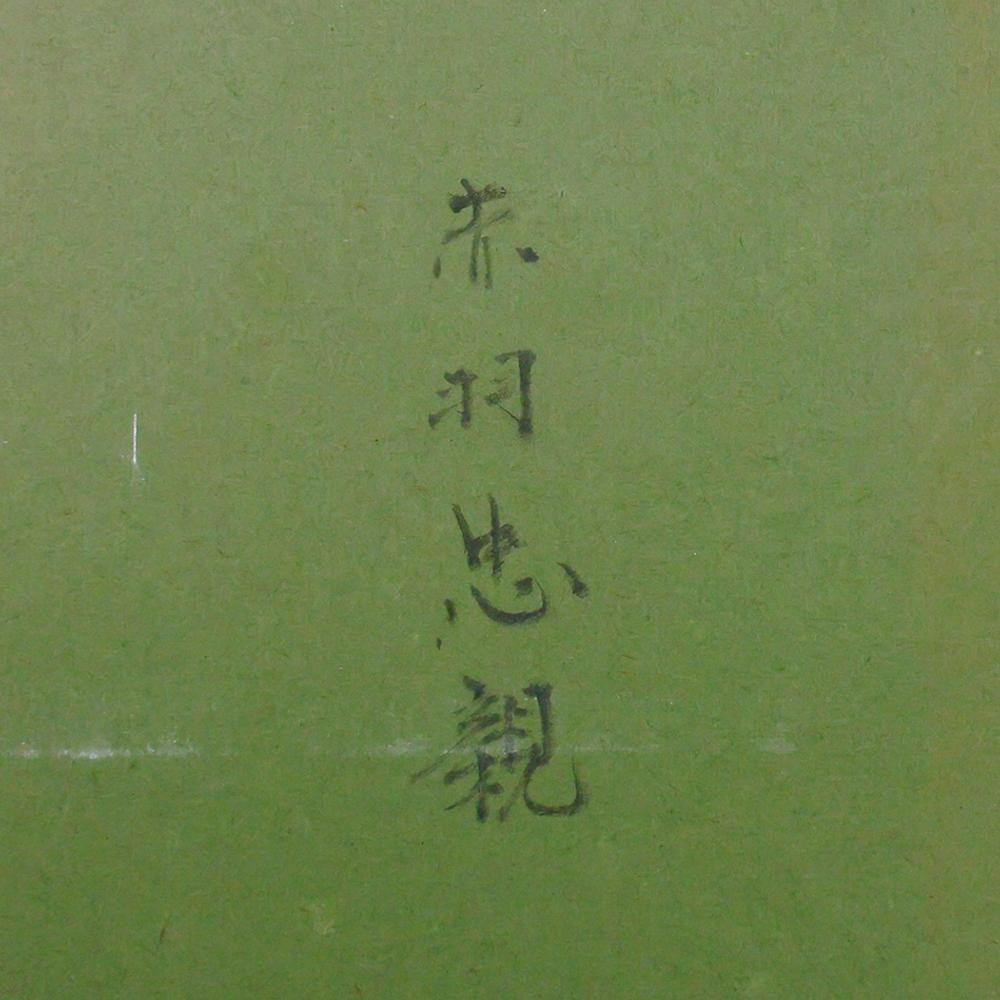 赤羽忠親